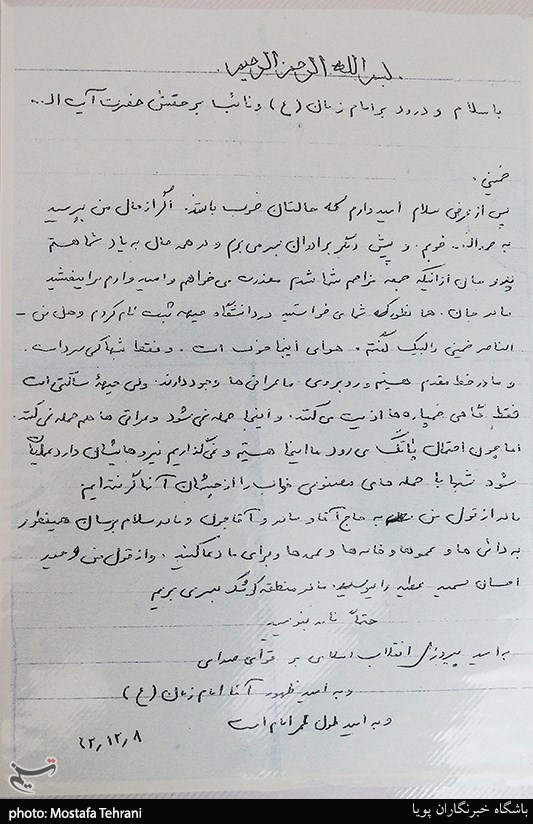 بسم الله الرحمن الرحیم
با سلام و درود بر امام زمان (ع) و نائب بر حقش حضرت آیت ال...
خمینی.
پس از عرض سلام امیدوارم که حالتان خوب باشد. اگر از حال من بپرسید
به حمدال... خوبم. و پیش دیگر برادران بسر می‌برم و در همه حال به یاد شما هستم
از اینکه جمعه مزاحم شما شدم معذرت می‌خواهم و امیدوارم مرا ببخشید
مادر جان. همانطور که شما می‌خواستید در دانشگاه جبهه ثبت نام کردم و هل من -
الناصر خمینی را لبیک گفتم. هوای اینجا خوب است. و فقط شبها کمی سرد است.
و ما در خط مقدم هستیم و روبروی ما عراقی‌ها وجود دارند. ولی جبهۀ ساکتی است
فقط گاهی خمپاره‌ها اذیت می‌کنند. و اینجا حمله نمی‌شود و عراقی‌ها هم حمله نمی‌کنند.
اما چون احتمال پاتک می‌رود ما اینجا هستیم و نمی‌گذاریم نیروهایشان وارد عملیات
شود شبها با حمله‌های مصنوعی خواب را از چشمان آنها گرفته‌ایم
مادر از قول من به حاج آقا و مادر و آقاجون و مادر سلام برسان همینطور
به دائی‌ها و عموها و خاله‌ها و عمه‌ها و برای ما دعا کنید. و از قول من وحید
احسان سعید عطیه را ببوسید. ما در منطقه کوشک بسر می‌بریم
حتماً نامه بنویسید
به امید پیروزی انقلاب اسلامی بر قوای صدامی
و به امید ظهور آقا امام زمان (ع)
و به امید طول عمر امام امت
۶۲,۱۲,۸
تسنیم
photo: Mostafa Tehrani
باشگاه خبرنگاران پویا